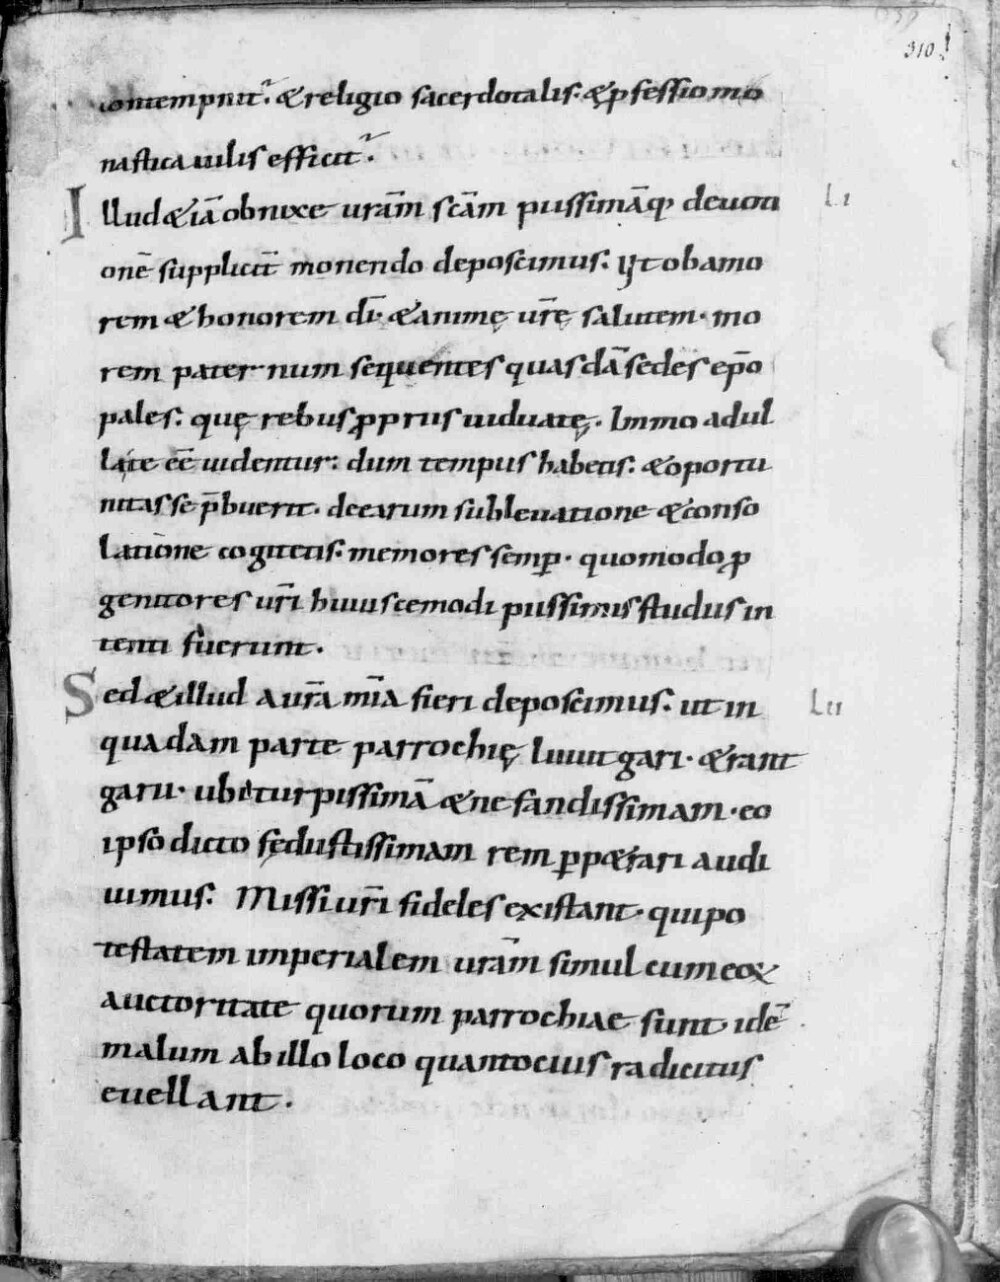 310
contempnit᷑. & religio sacerdotalis. & ꝓfessio mo
nastica uilis efficit᷑.
Illud & iā obnixe urām scām piissimāq; deuoti LI
onē suppliciť monendo deposcimus. ut ob amo
rem & honorem dī. & animę urę̄ salutem. mo
rem paternum sequentes quasdā sedes ep̄o
pales. quę rebus ꝓpriis uiduatę. Immo adul
latę eē uidentur. dum tempus habetis. & oportu
nitas se p̄buerit. de earum subleuatione & conso
latione cogitetis. memores semꝑ. quomodo ꝓ
genitores urī huiuscemodi piissimis studiis in
tenti fuerunt.
Sed & illud a urā mīa fieri deposcimus. ut in LII
quadam parte parrochię liuutgari. & rant
garii. ubi turpissimā & nefandissimam. eo
ipso dicto sędustissimam rem ꝑpetrari audi
uimus. Missi urī fideles existant. qui po
testatem imperialem urām simul cum eox
auctoritate quorum parrochiae sunt. idē
malum ab illo loco quantocius radicitus
euellant.